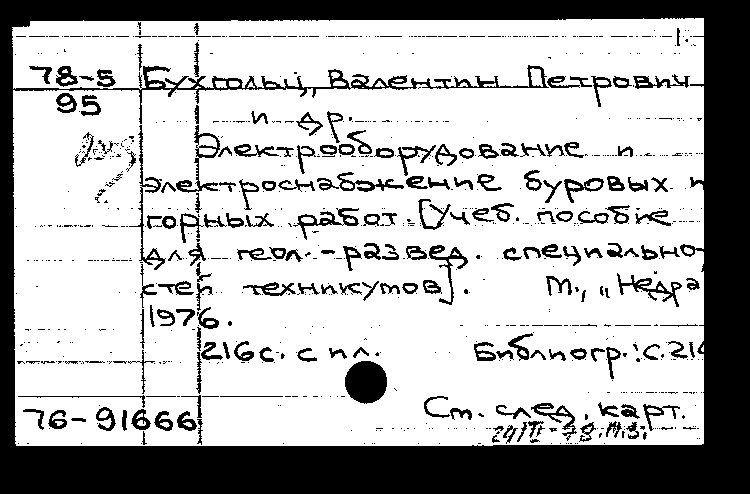 1.
78-5 Бухгольц, Валентин Петрович
95
и др.
Электрооборудование и
электроснабжение буровых и
горных работ. [Учеб. пособие
для геол.-развед. специально-
стей техникумов]. М., „Недра
1976.
216 с. с ил. Библиогр.: с. 214
76-91666 См. след. карт.